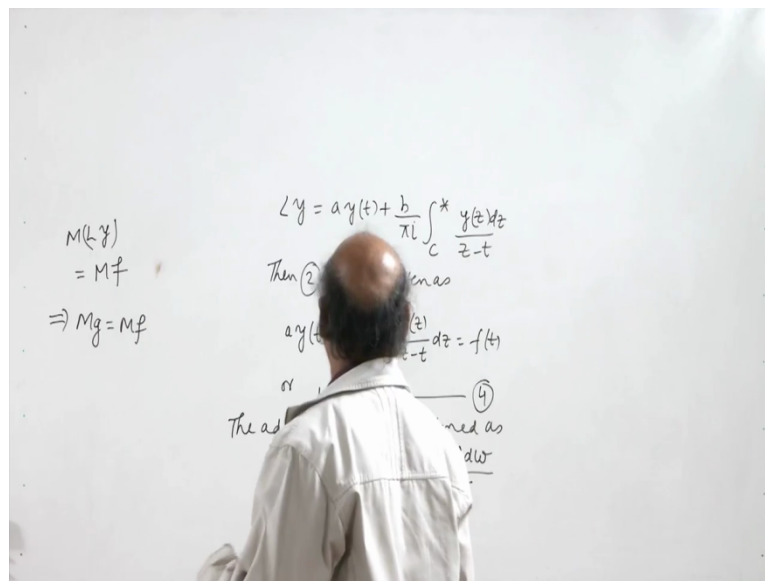 M(Ly)
= Mf
⇒ Mg = Mf
Ly = ay(t) + b/πi ∫*_C y(z)dz/z-t
Then ② en as
ay(t (z)/z-t dz = f(t)
or ④
The ad ned as
dw